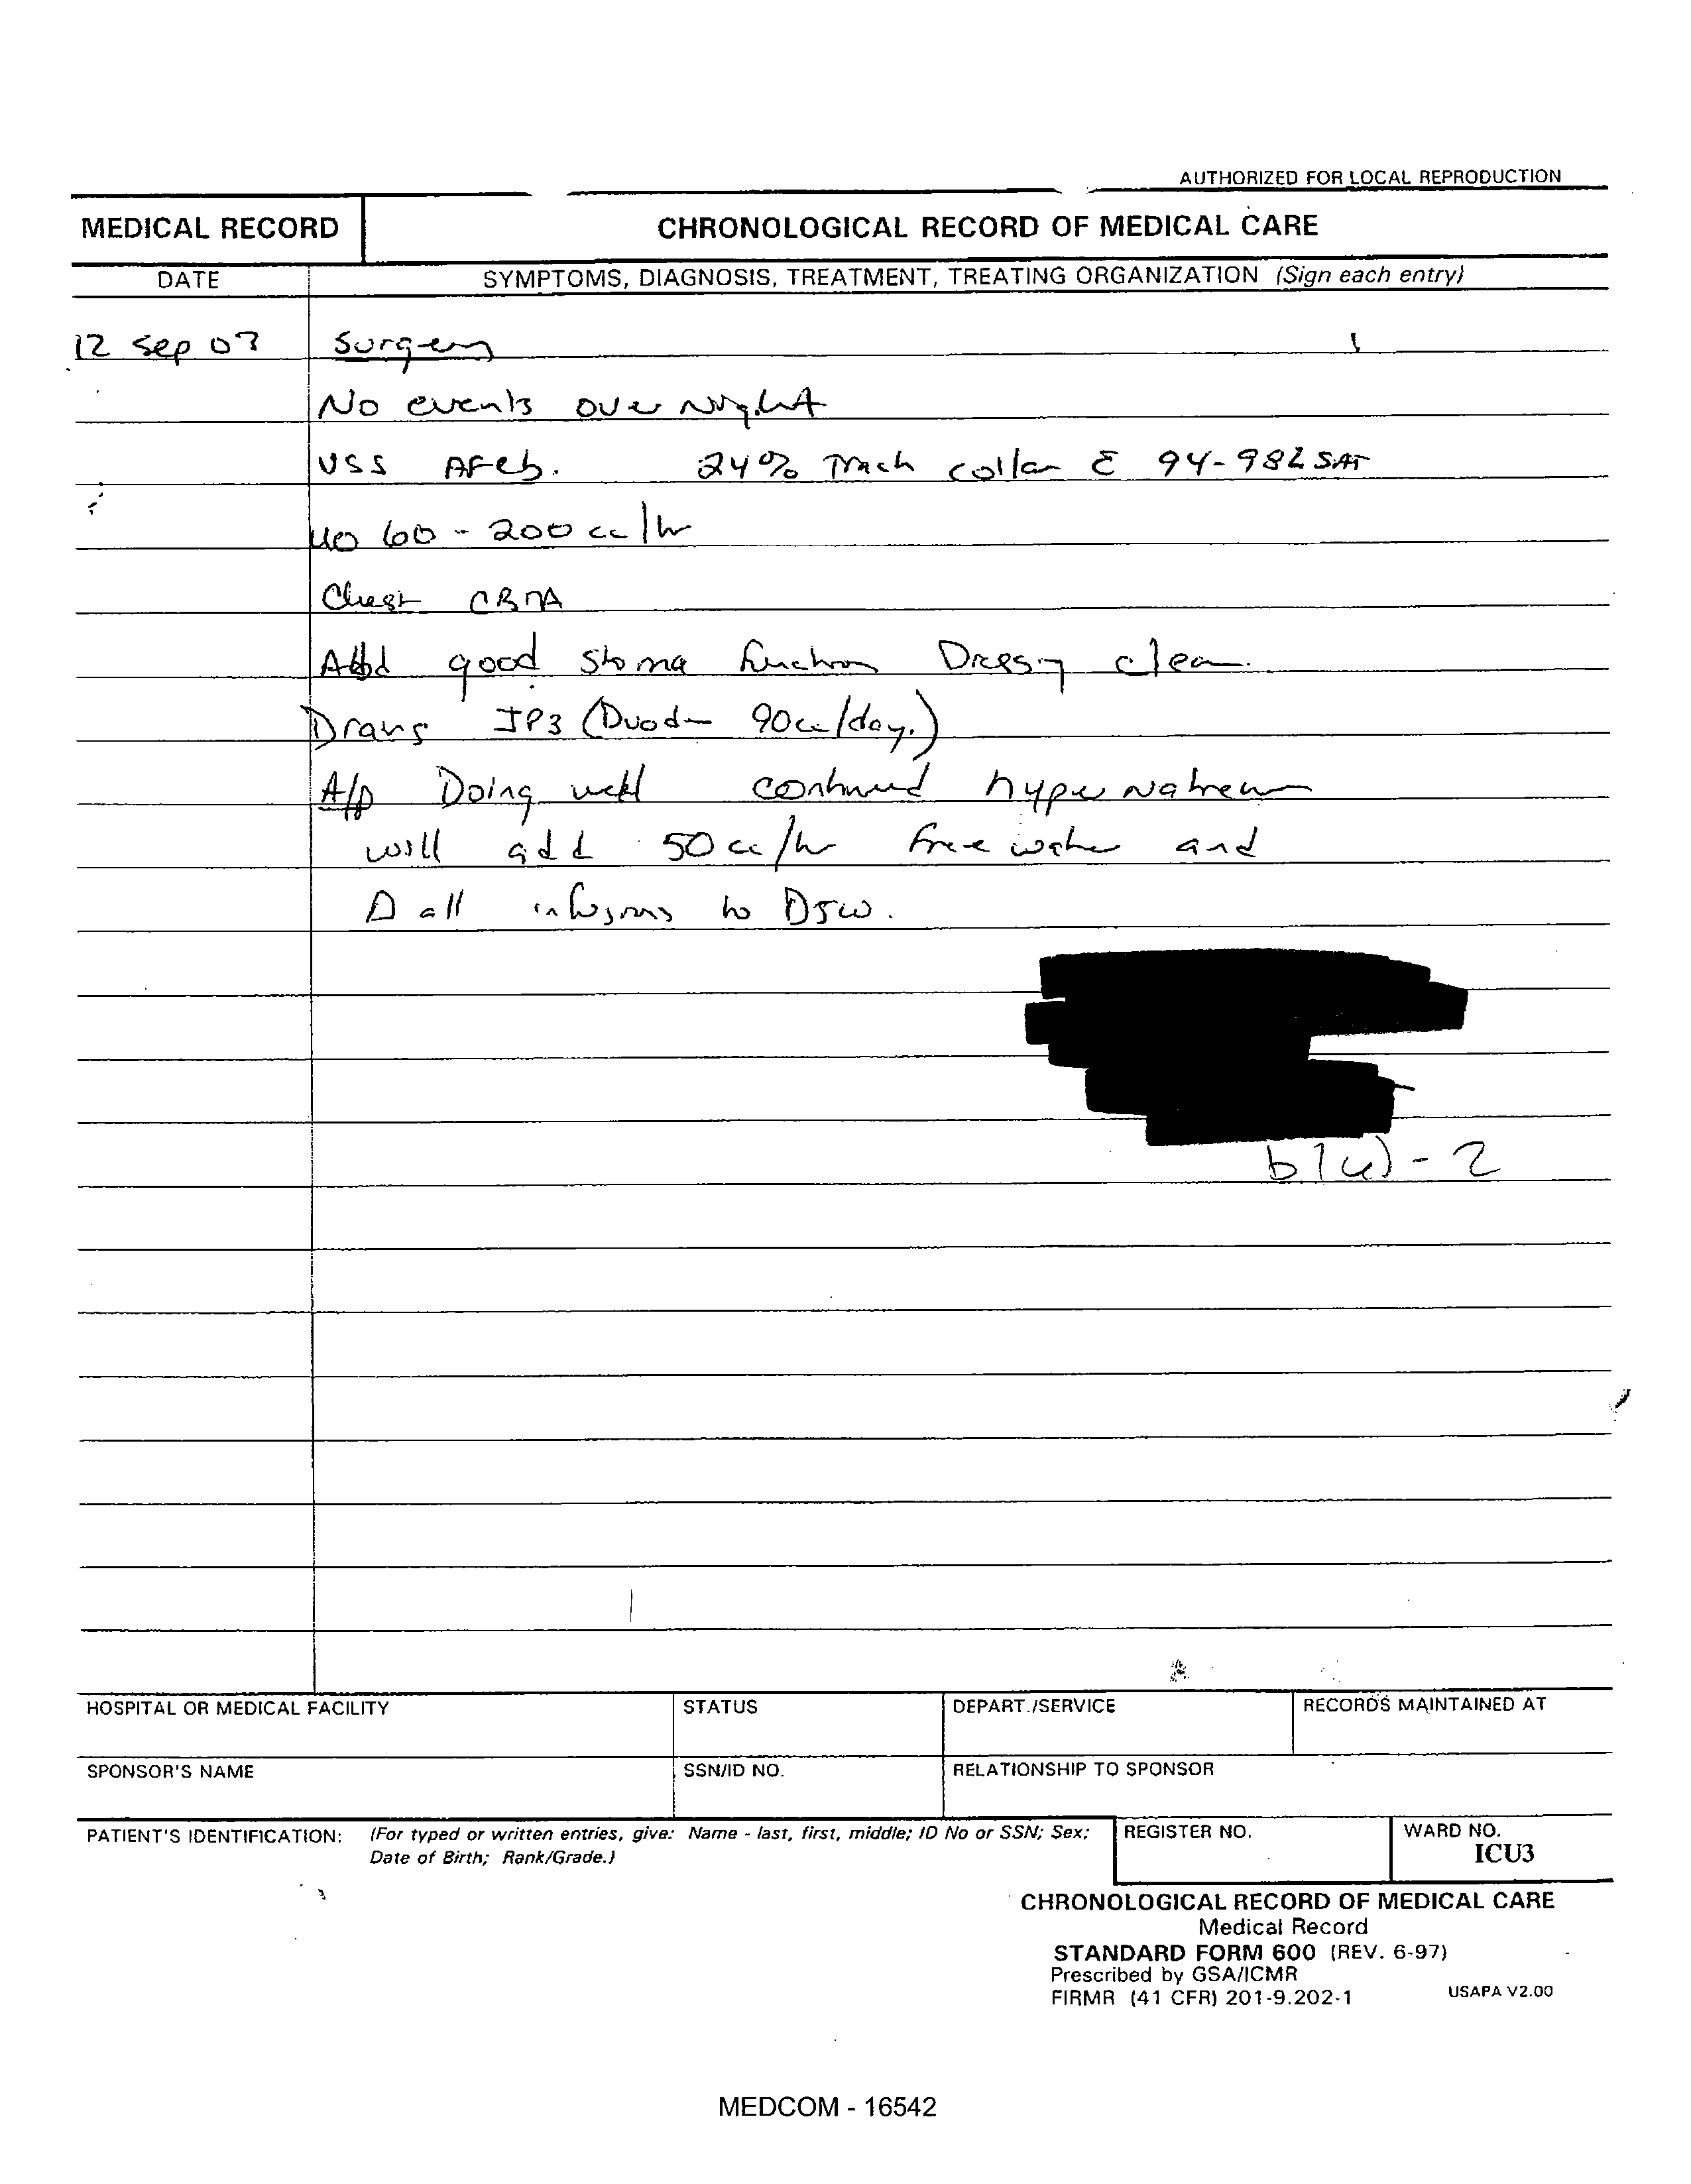 AUTHORIZED FOR LOCAL REPRODUCTION
MEDICAL RECORD CHRONOLOGICAL RECORD OF MEDICAL CARE
DATE SYMPTOMS, DIAGNOSIS, TREATMENT, TREATING ORGANIZATION (Sign each entry)
12 Sep 03 Surgery
No events over Night
VSS AFeb. 24% Trach collar c̄ 94-98% SAT
UO 60 - 200 cc/hr
Chest CBTA
Abd good stoma function Dressing clean.
Drains JP3 (Duod- 90cc/day.)
A/p Doing well continued hypernatremia
will add 50 cc/hr free water and
Δ all infusions to D5W.
b(6)-2
HOSPITAL OR MEDICAL FACILITY STATUS DEPART./SERVICE RECORDS MAINTAINED AT
SPONSOR'S NAME SSN/ID NO. RELATIONSHIP TO SPONSOR
PATIENT'S IDENTIFICATION: (For typed or written entries, give: Name - last, first, middle; ID No or SSN; Sex; REGISTER NO. WARD NO.
Date of Birth; Rank/Grade.) ICU3
CHRONOLOGICAL RECORD OF MEDICAL CARE
Medical Record
STANDARD FORM 600 (REV. 6-97)
Prescribed by GSA/ICMR
FIRMR (41 CFR) 201-9.202-1 USAPA V2.00
MEDCOM - 16542